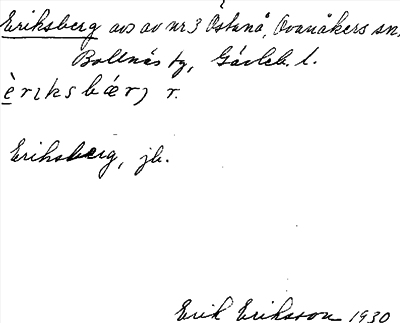 Eriksberg avs av nr 3 Östanå, Ovanåkers sn,
Bollnäs tg, Gävleb. l.
èrıksbǽrj r.
Eriksberg, jb.
Erik Eriksson 1930